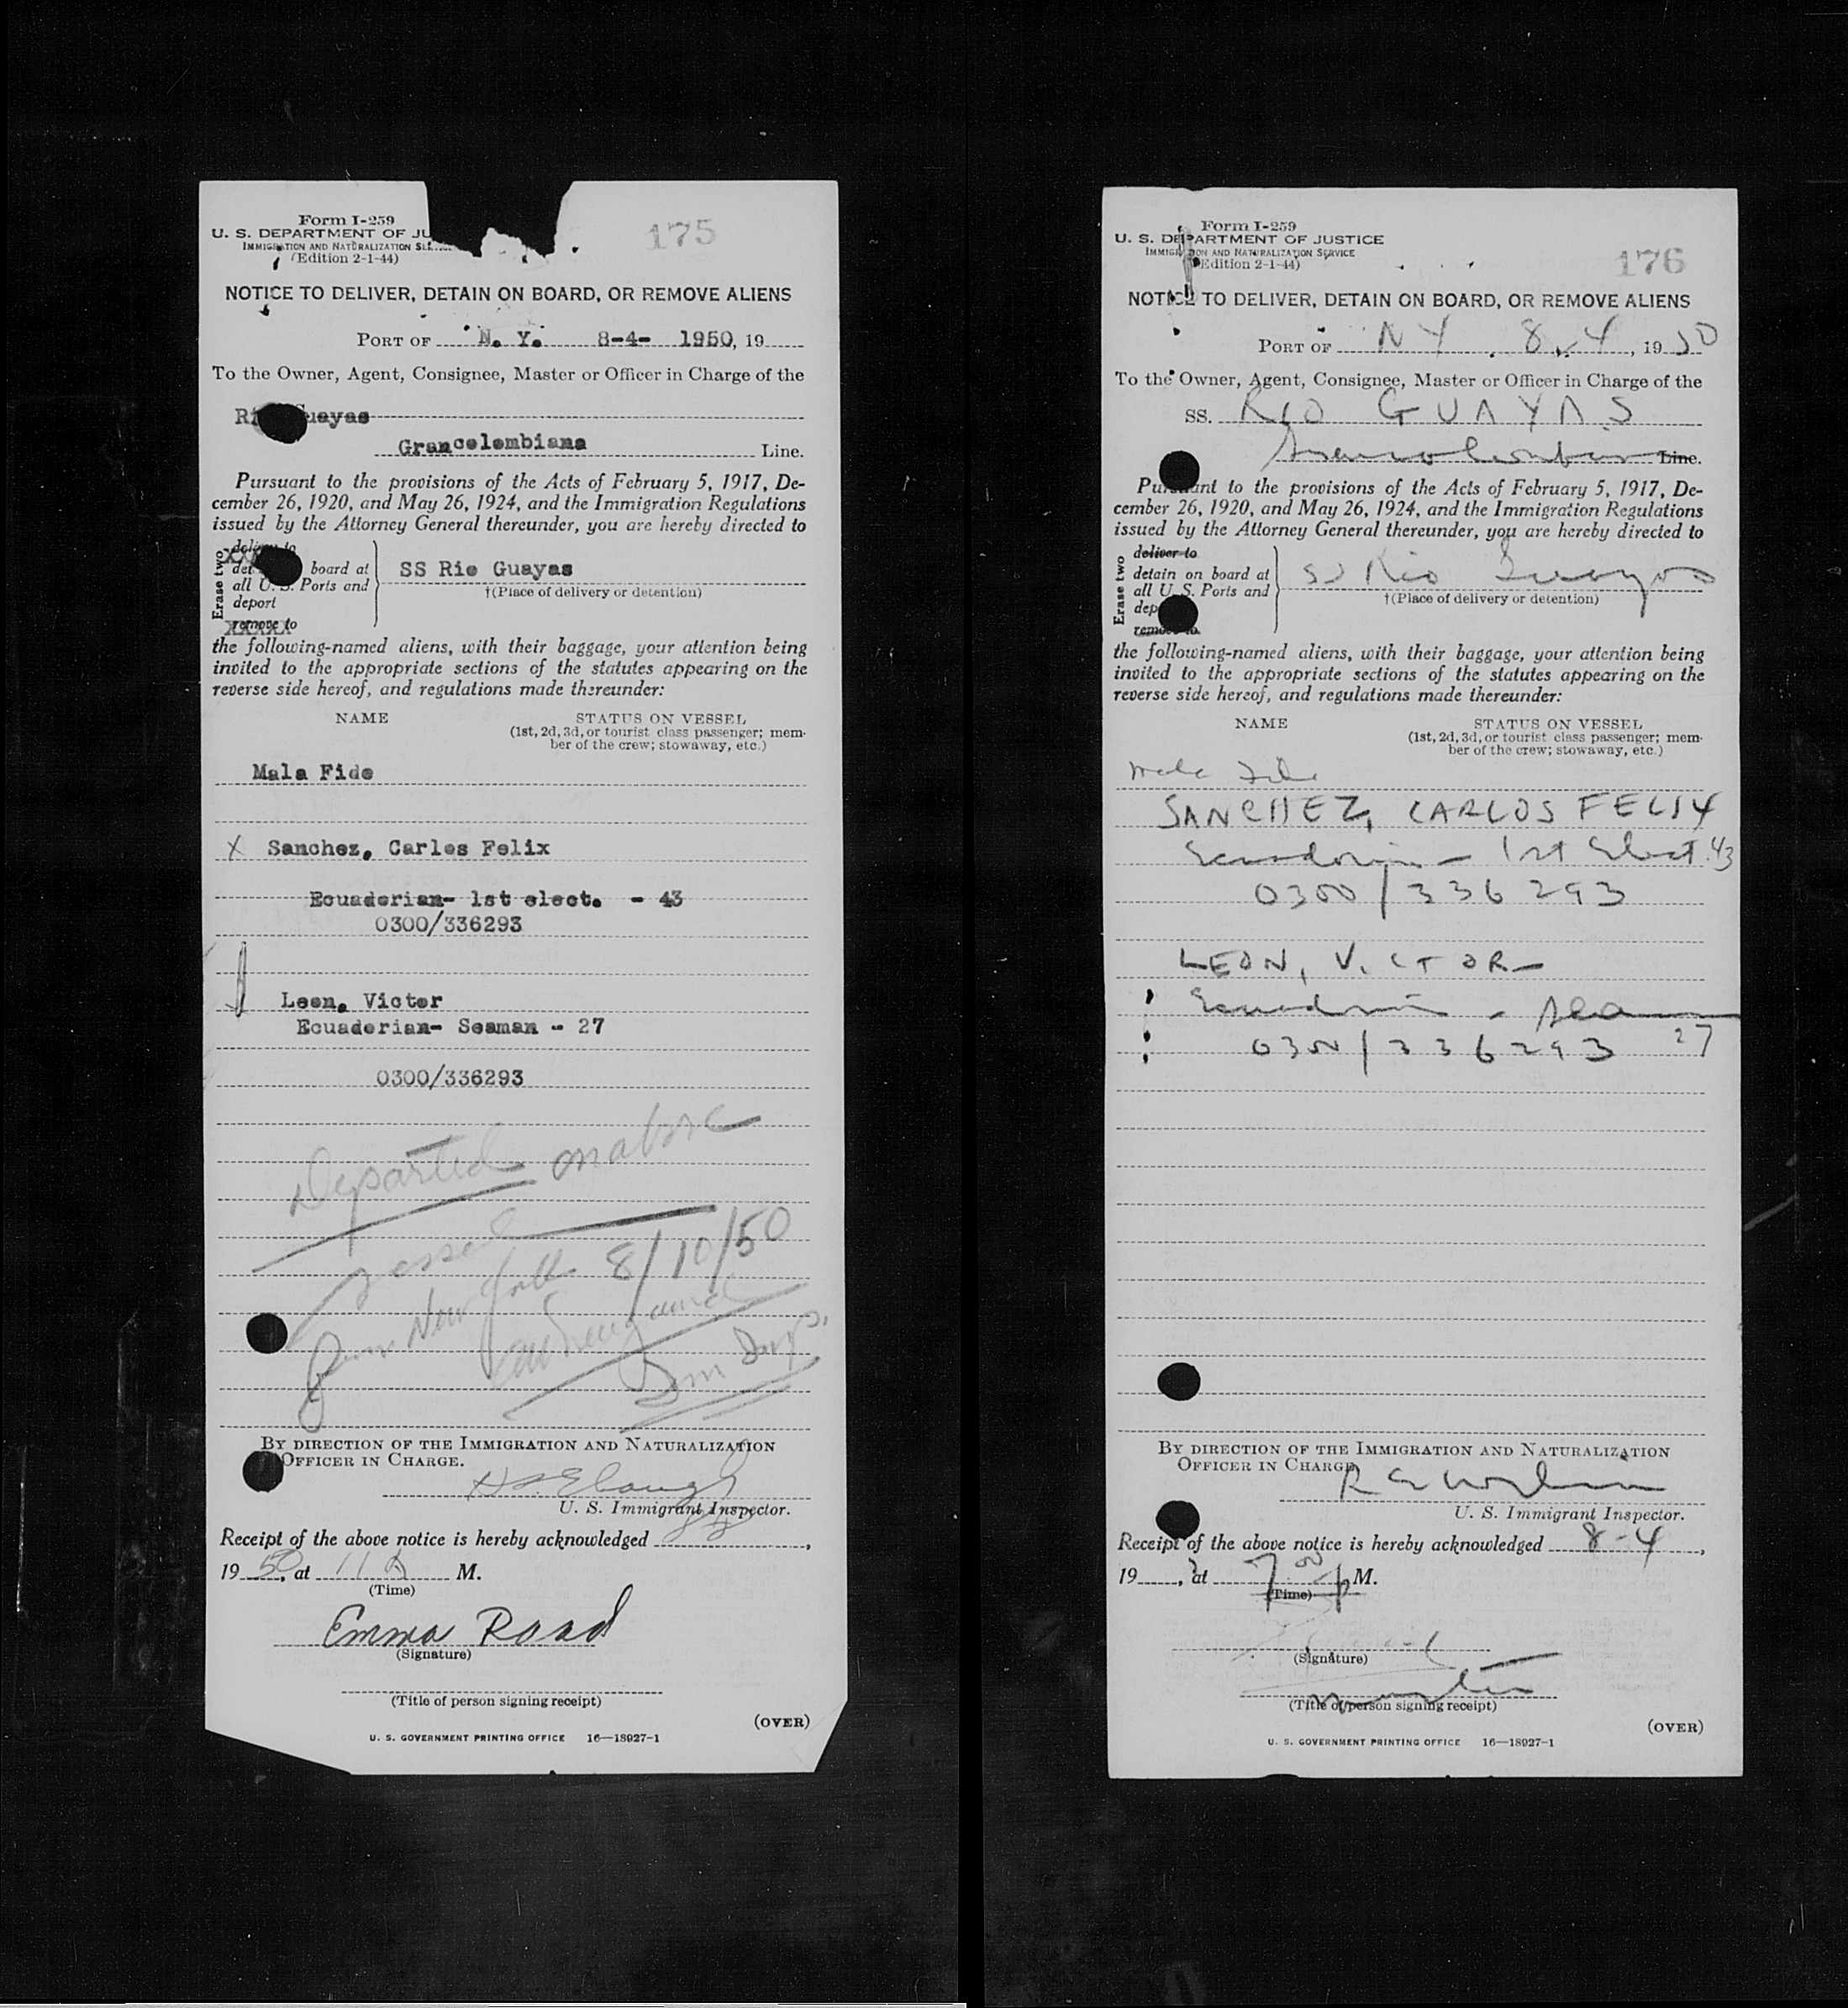 Form I-259
U. S. DEPARTMENT OF JU
IMMIGRATION AND NATURALIZATION SE
(Edition 2-1-44)
175
NOTICE TO DELIVER, DETAIN ON BOARD, OR REMOVE ALIENS
PORT OF N. Y. 8-4- 1950, 19
To the Owner, Agent, Consignee, Master or Officer in Charge of the
Ri Guayas
Grancolombiana Line.
Pursuant to the provisions of the Acts of February 5, 1917, De-
cember 26, 1920, and May 26, 1924, and the Immigration Regulations
issued by the Attorney General thereunder, you are hereby directed to
Erase two
deliver to
det board at
all U. S. Ports and
deport
remove to
SS Rio Guayas
†(Place of delivery or detention)
the following-named aliens, with their baggage, your attention being
invited to the appropriate sections of the statutes appearing on the
reverse side hereof, and regulations made thereunder:
NAME
STATUS ON VESSEL
(1st, 2d, 3d, or tourist class passenger; mem-
ber of the crew; stowaway, etc.)
Mala Fide
X Sanchez, Carlos Felix
Ecuadorian- 1st elect. - 43
0300/336293
Leon, Victor
Ecuadorian- Seaman - 27
0300/336293
Departed on above
vessel
from New York 8/10/50
BY DIRECTION OF THE IMMIGRATION AND NATURALIZATION
OFFICER IN CHARGE.
U. S. Immigrant Inspector.
Receipt of the above notice is hereby acknowledged ,
19 50, at 11 A M.
(Time)
Emma Road
(Signature)
(Title of person signing receipt)
(OVER)
U. S. GOVERNMENT PRINTING OFFICE 16—18927-1
Form I-259
U. S. DEPARTMENT OF JUSTICE
IMMIGRATION AND NATURALIZATION SERVICE
(Edition 2-1-44)
176
NOTICE TO DELIVER, DETAIN ON BOARD, OR REMOVE ALIENS
PORT OF NY 8-4, 19 50
To the Owner, Agent, Consignee, Master or Officer in Charge of the
SS. RIO GUAYAS
Grancolombiana Line.
Pursuant to the provisions of the Acts of February 5, 1917, De-
cember 26, 1920, and May 26, 1924, and the Immigration Regulations
issued by the Attorney General thereunder, you are hereby directed to
Erase two
deliver to
detain on board at
all U. S. Ports and
dep
remove to
SS Rio Guayas
†(Place of delivery or detention)
the following-named aliens, with their baggage, your attention being
invited to the appropriate sections of the statutes appearing on the
reverse side hereof, and regulations made thereunder:
NAME
STATUS ON VESSEL
(1st, 2d, 3d, or tourist class passenger; mem-
ber of the crew; stowaway, etc.)
Mala Fide
SANCHEZ, CARLOS FELIX
Ecuadorian - 1st Elect. 43
0300/336293
LEON, VICTOR
Ecuadorian - Seaman
0300/336293 27
BY DIRECTION OF THE IMMIGRATION AND NATURALIZATION
OFFICER IN CHARGE
U. S. Immigrant Inspector.
Receipt of the above notice is hereby acknowledged 8-4,
19 , at 7 00 p M.
(Time)
(Signature)
Master
(Title of person signing receipt)
(OVER)
U. S. GOVERNMENT PRINTING OFFICE 16—18927-1